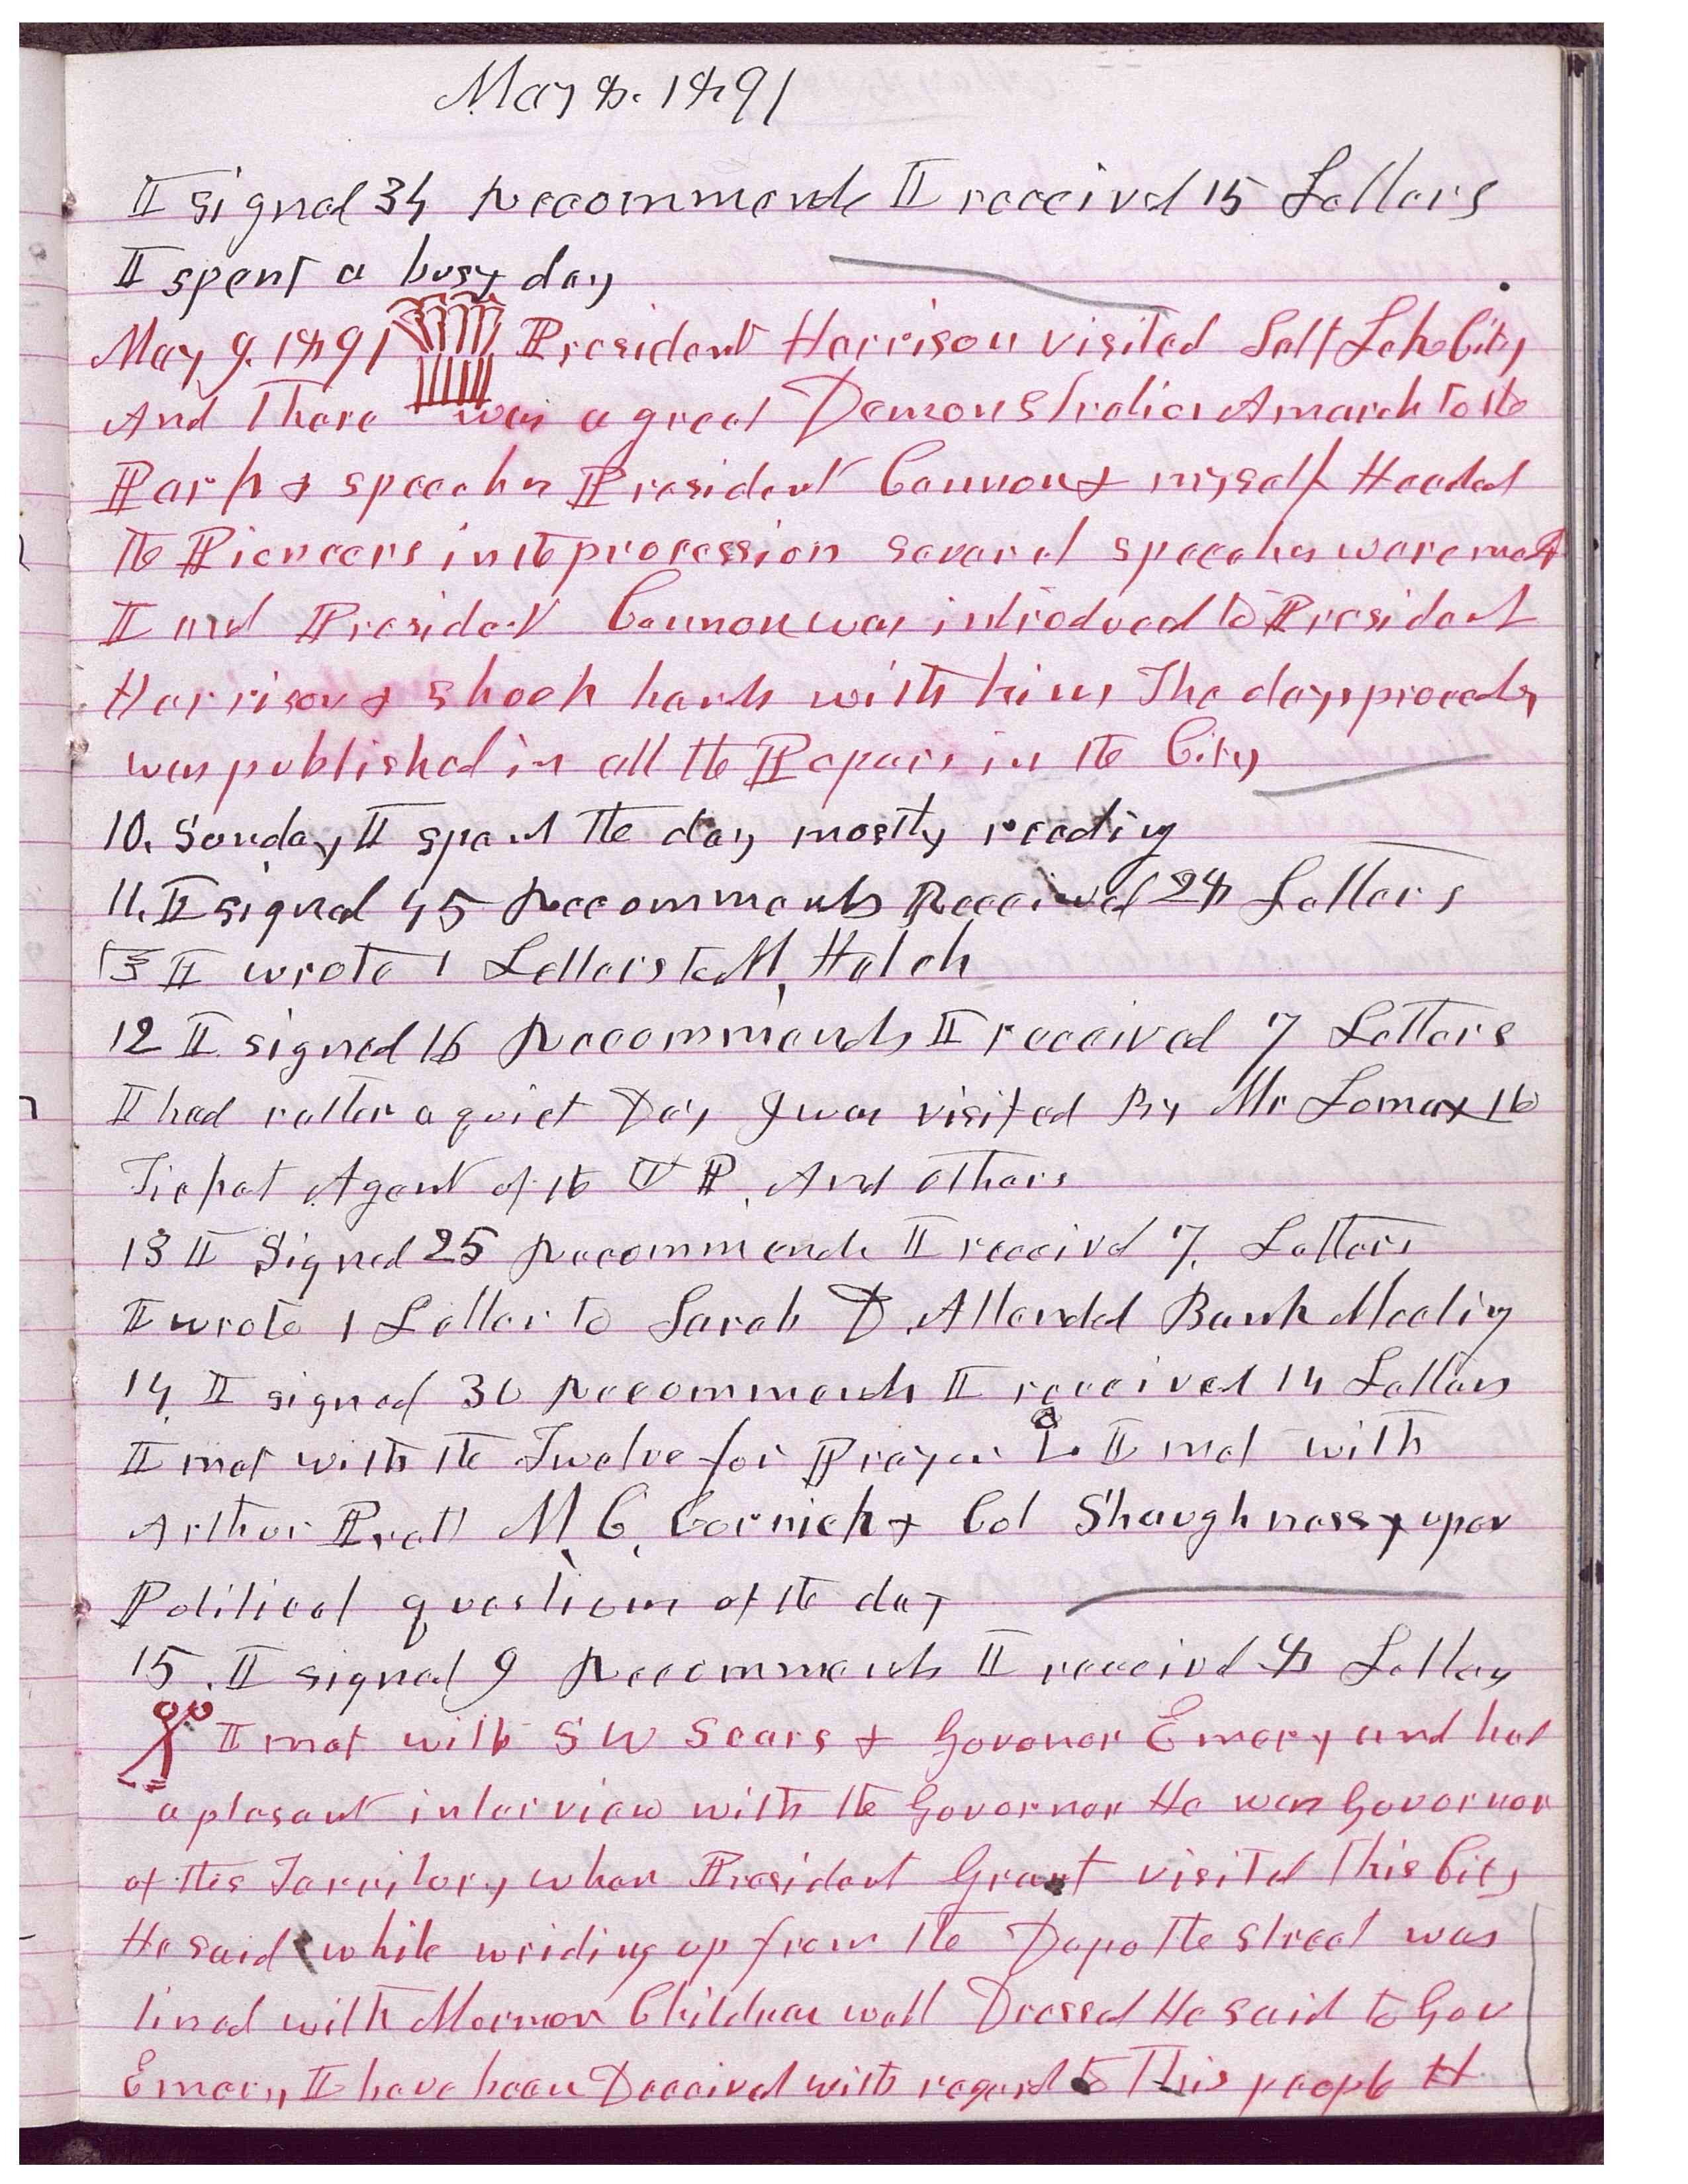 May 8. 1891
I signed 34 Recommends I received 15 Letters
I spent a busy day
May 9. 1891 President Harrison visited Salt Lake City
And there was a great Demonstration A march to the
Park & speeches President Cannon & myself Headed
the Pioneers in the procession several speeches were made
I and President Cannon was introduced to President
Harrison & shook hands with him The days proceeds
was published in all the Papers in the City
10. Sunday I spent the day mostly reading
11. I signed 45 Recommends Received 28 Letters
I wrote 1 Letters to M. Hatch
12 I signed 16 Recommends I received 7 Letters
I had rather a quiet Day I was visited By Mr Lomax the
Ticket Agent of the U P. And others
13 I Signed 25 Recommends I receivd 7. Letters
I wrote 1 Letter to Sarah D. Attended Bank Meeting
14. I signed 30 Recommends I received 14 Letters
I met with the Twelve for Prayer I met with
Arthur Pratt M. C. Cornick & Col Shaughnessy upon
Political questions of the day
15. I signed 9 Recommends I receivd 8 Letters
I met with S W Sears & Govonor Emery and had
a plesant interview with the Governor He was Governor
of this Territory when President Grant visitd this City
He said while writding up from the Depo the street was
lined with Mormon Children well Dressed He said to Gov
Emery, I have been Deceived with regard to This people H